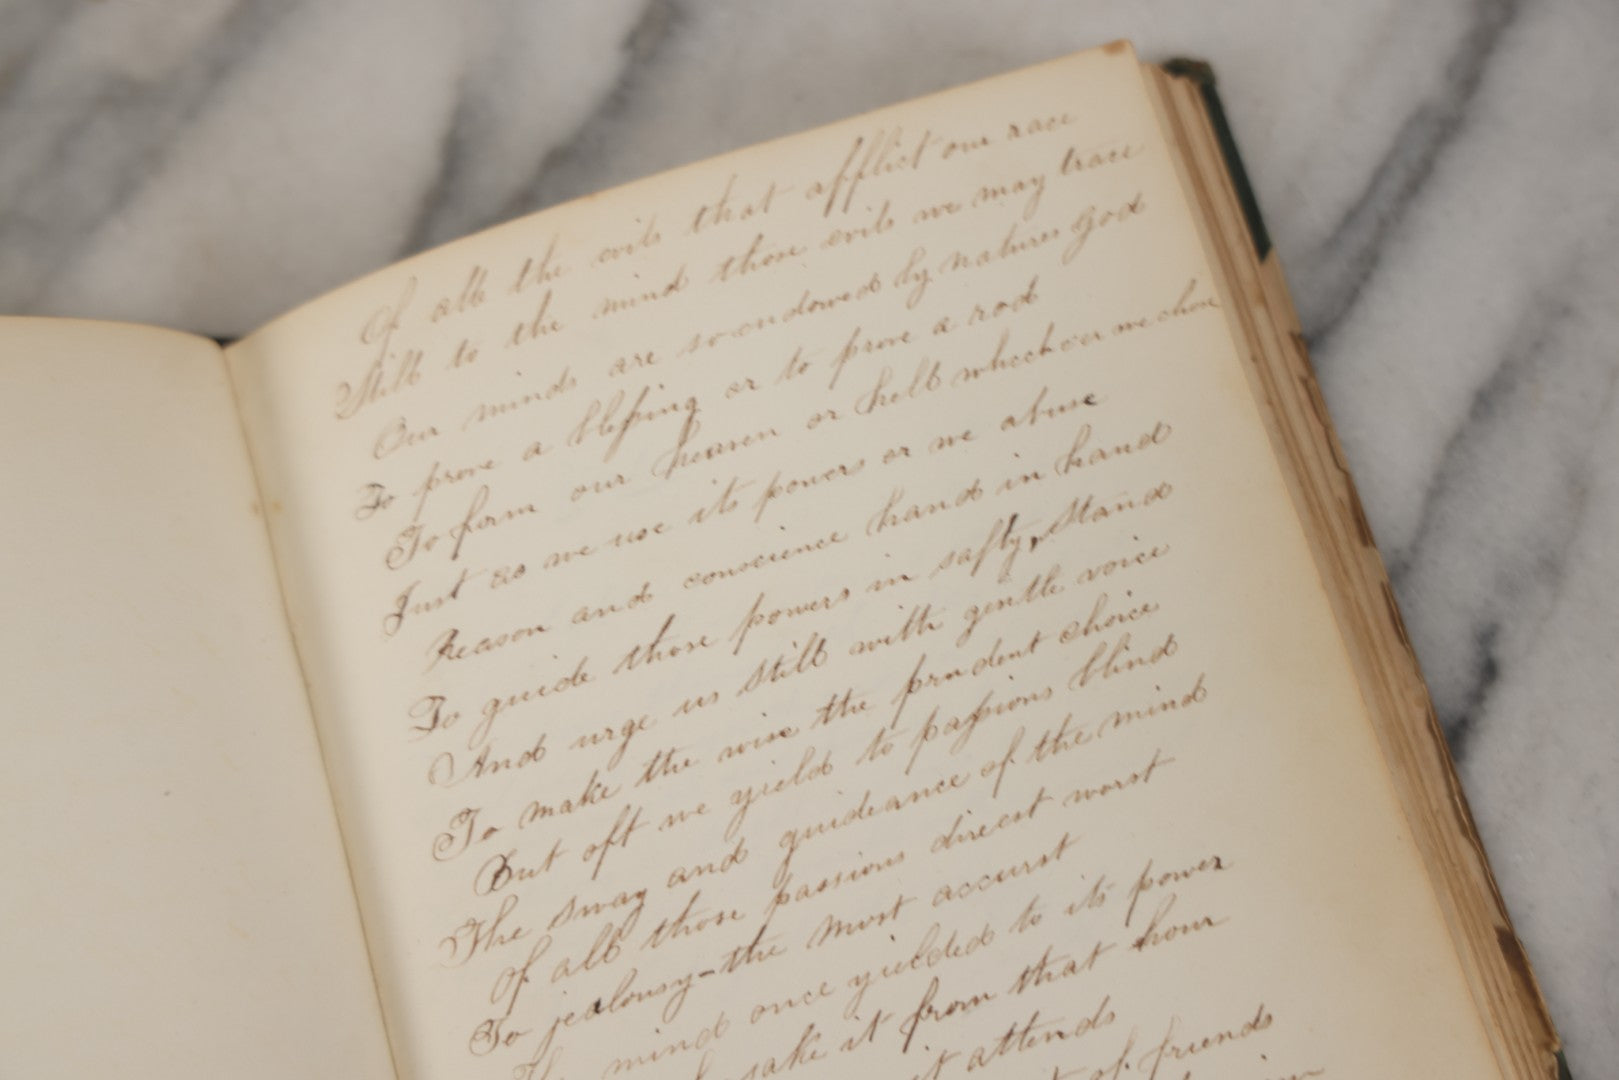 Of all the evils that afflict our race
Still to the mind those evils we may trace
Our minds are so endowed by natures God
To prove a blessing or to prove a rod
To form our heaven or hell whichever we chon
Just as we use its powers or we abuse
Reason and conscience hand in hand
To guide those powers in safty, stand
And urge us still with gentle voice
To make the wise the prudent choice
But oft we yield to passions blind
The sway and guideance of the mind
Of all those passions direst worst
To jealousy-the most accurst
mind once yielded to its power
sake it from that hour
it attends
of friends